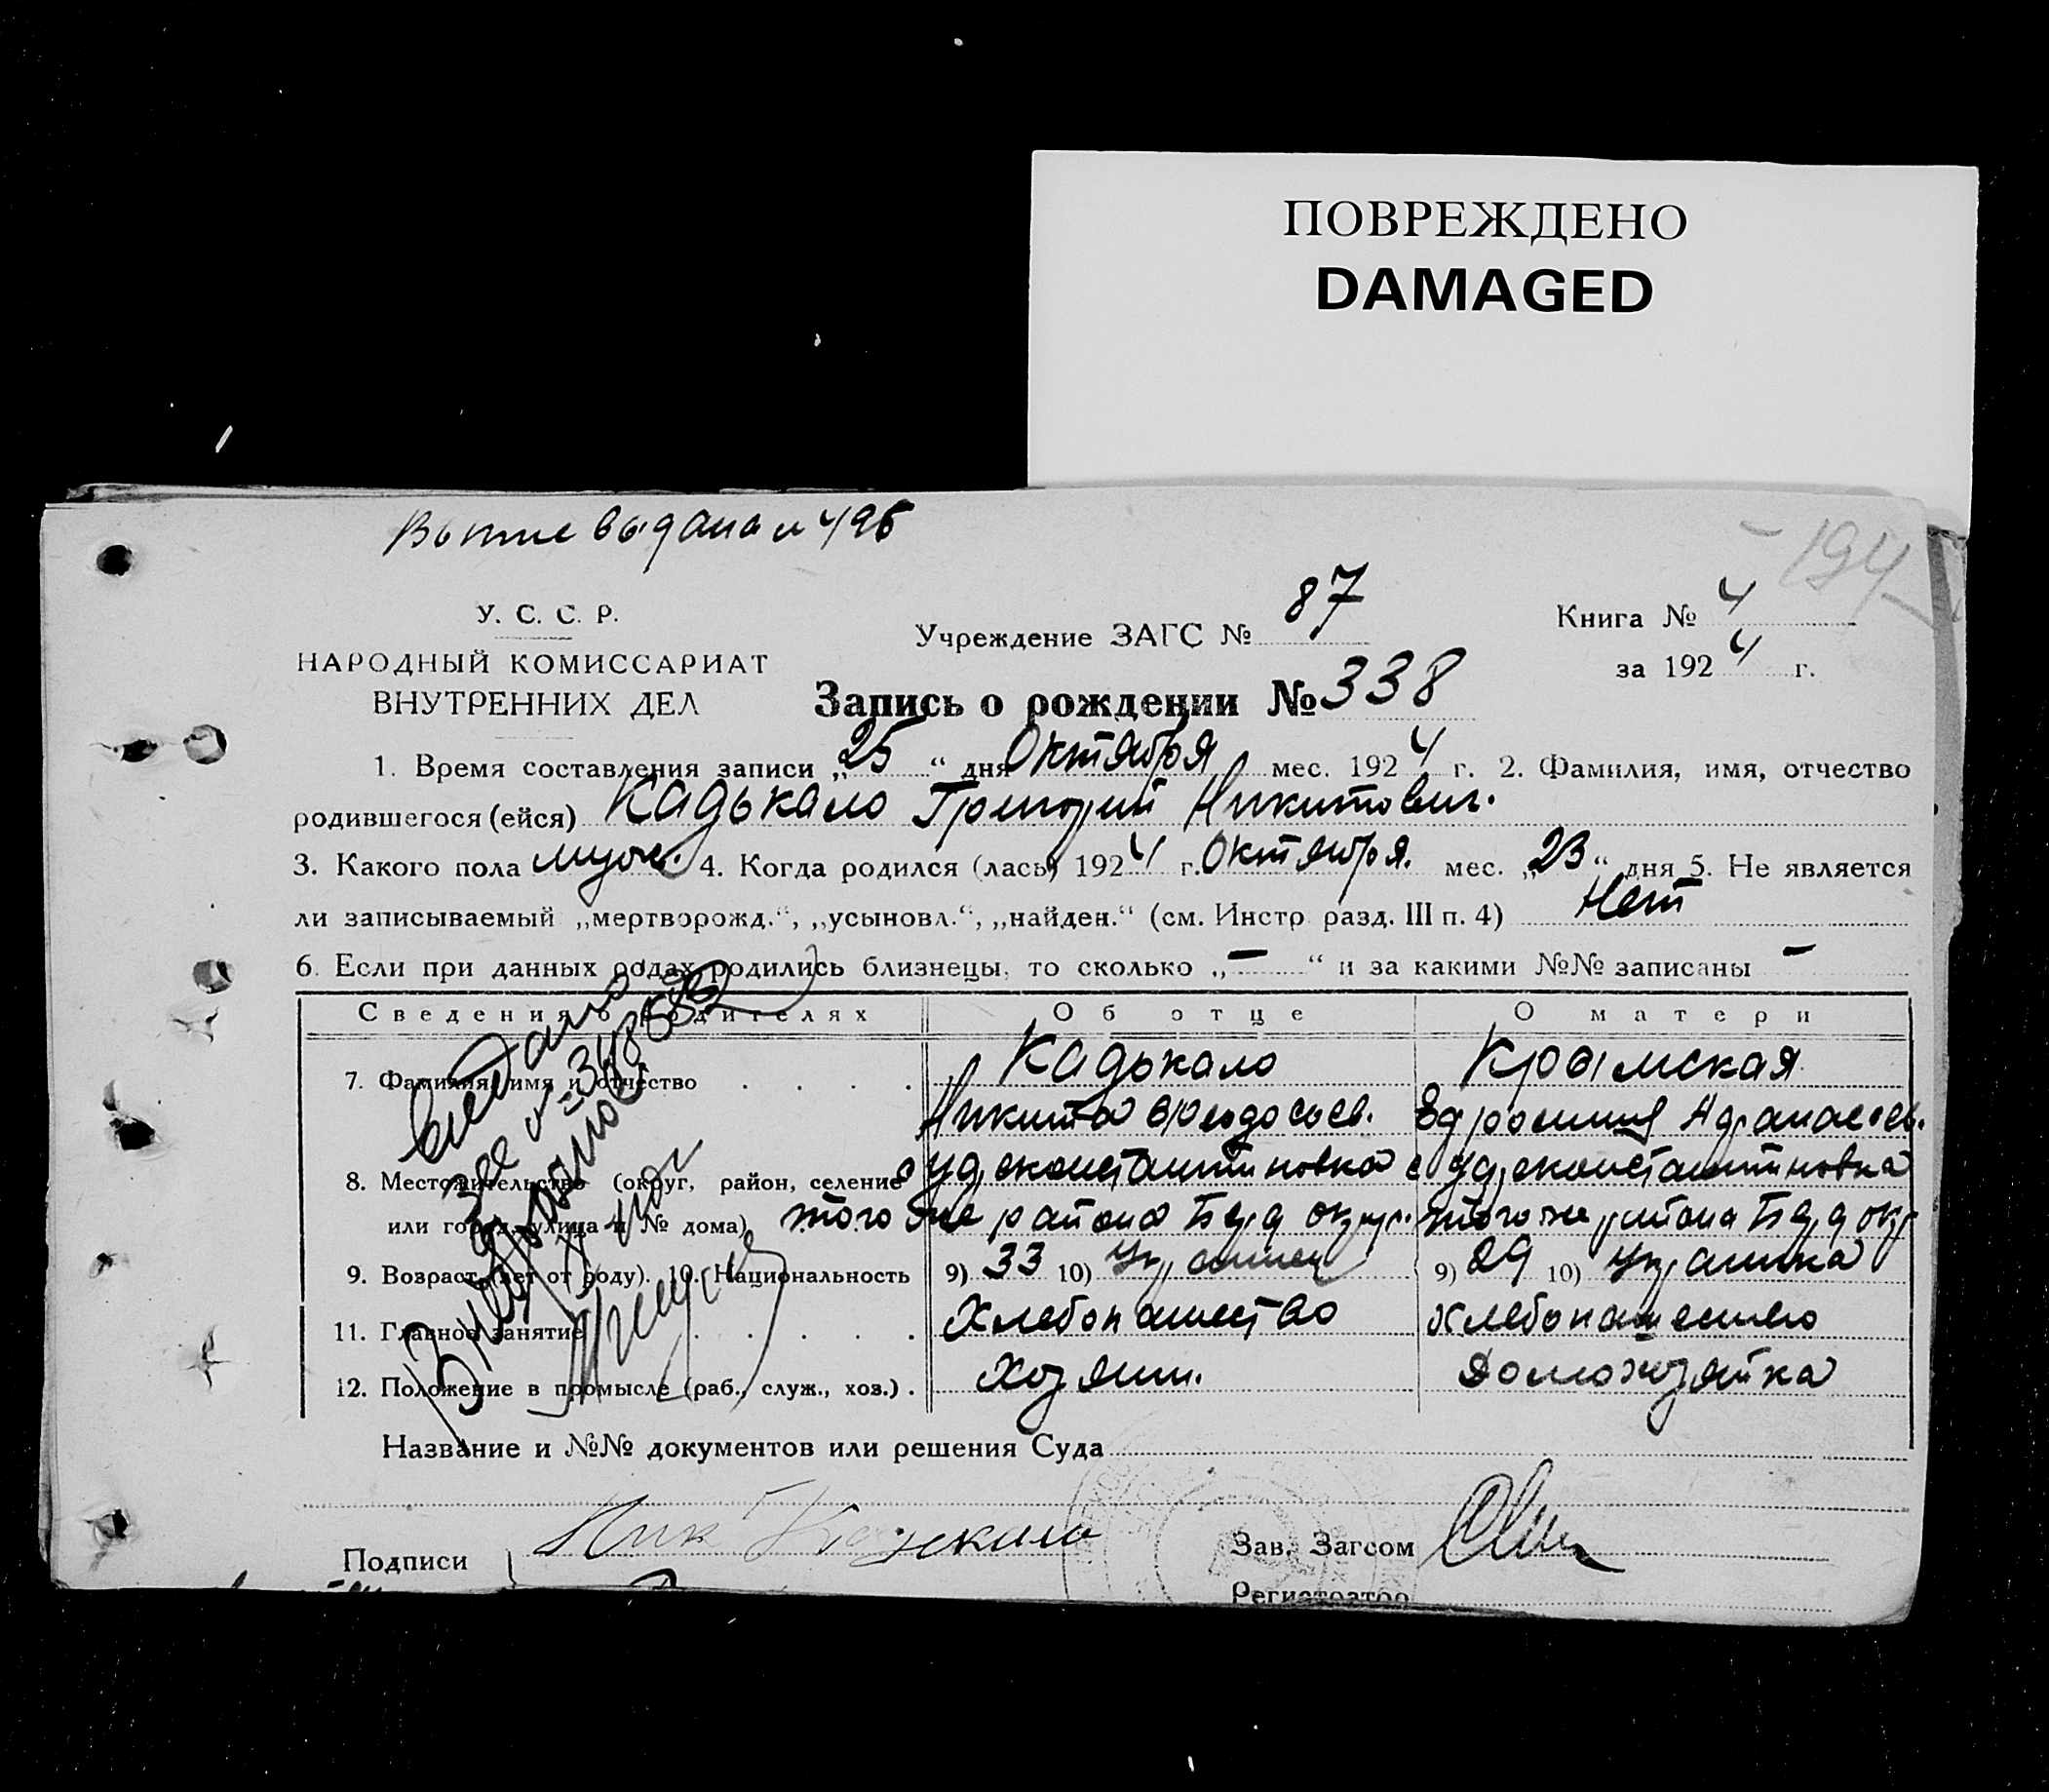 ПОВРЕЖДЕНО
DAMAGED
выдана 496
194
У. С. С. Р.
НАРОДНЫЙ КОМИССАРИАТ
ВНУТРЕННИХ ДЕЛ
Учреждение ЗАГС № 87
Книга № 4
за 1924 г.
Запись о рождении № 338
1. Время составления записи „25“ дня Октября мес. 1924 г. 2. Фамилия, имя, отчество
родившегося (ейся) Кадькало Григорий Никитович.
3. Какого пола муж. 4. Когда родился (лась) 1924 г. Октября. мес. „23“ дня 5. Не является
ли записываемый „мертворожд.“, „усыновл.“, „найден.“ (см. Инстр. разд. III п. 4) Нет
6. Если при данных родах родились близнецы, то сколько „—“ и за какими №№ записаны —
Сведения о родителях Об отце О матери
7. Фамилия, имя и отчество . . . . Кадькало Крымская
Никита Феодосьев. Афанасьев.
8. Местожительство (округ, район, селение
или город, улица и № дома) того же района округ. того же района окр
9. Возраст (лет от роду). 10. Национальность 9) 33 10) Украинец 9) 29 10) Украинка
11. Главное занятие . . . . . Хлебопашество Хлебопашество
12. Положение в промысле (раб., служ., хоз.) . Хозяин. Домохозяйка
Название и №№ документов или решения Суда
Подписи Ник Кадькало Зав. Загсом
Регистратор